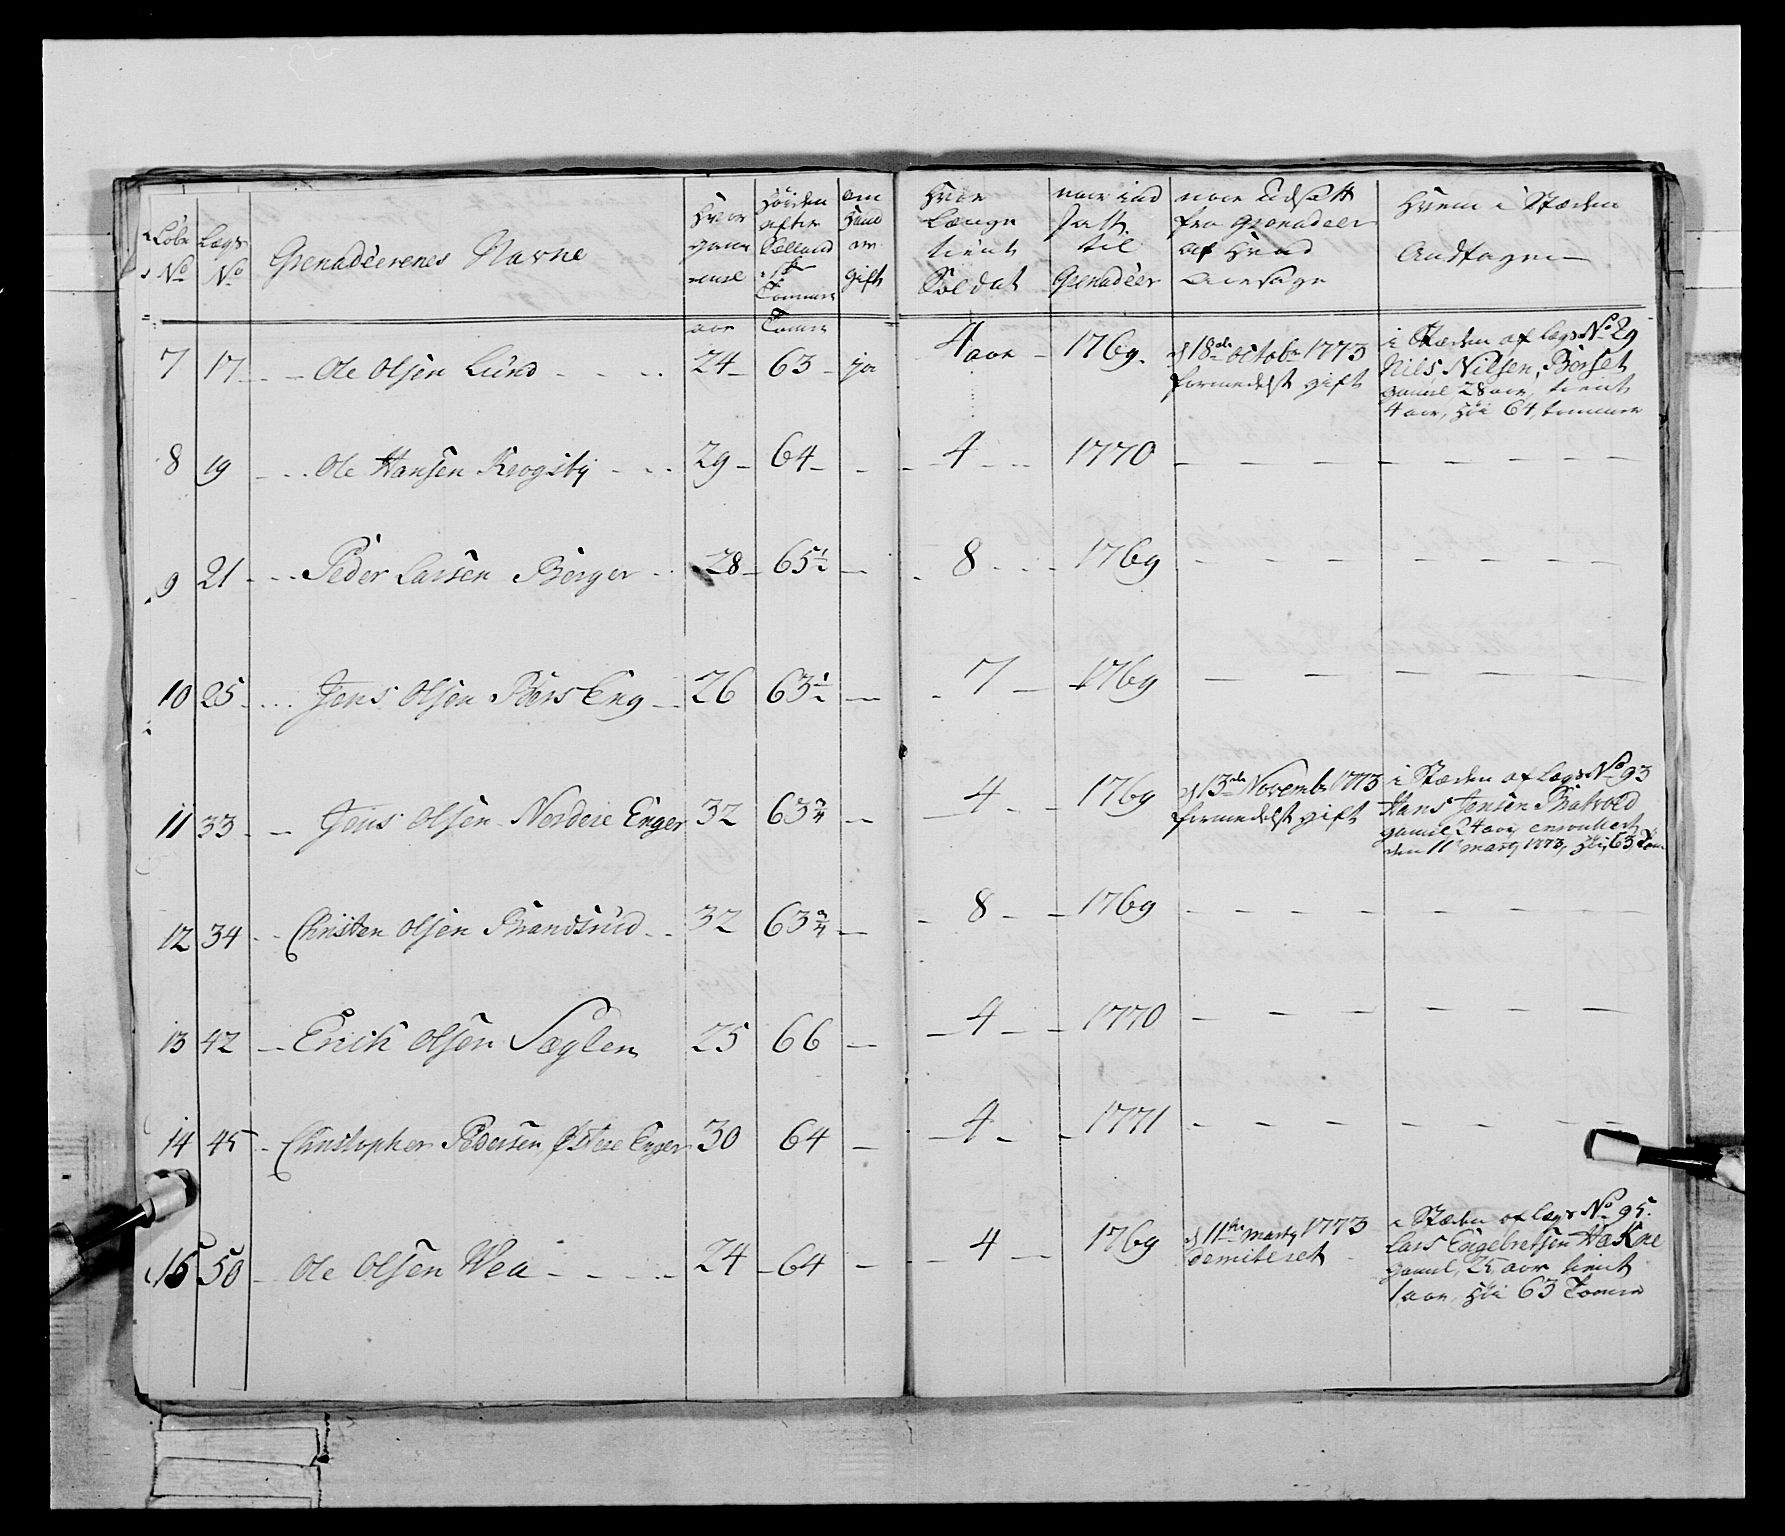 Löbe Lægs Grenadeerenes Navne Hvor Höiden om Hvor naar ind naar Udsatt Hvem i Stæden
No No gam efter Hand Længe satt fra Grenadeer Andtagen
Sælland er tient til af Hvad
Tommer gift Soldat Grenadeer Aarsage
aar Tomer
7 17 Ole Olsen Lund 24 63 ja 4 aar 1769 d 18de octobr 1773 i Stæden af Lægs No 29
formedelst gift Nils Nilsen Börset
gamel 28 aar, tient
4 aar, Höi 64 tommer
8 19 Ole Hansen Krogsby 29 64 4 1770
9 21 Peder Larsen Berger 28 65½ 8 1769
10 25 Jens Olsen Börs Eng 26 63½ 7 1769
11 33 Jens Olsen Nordere Enger 32 63¾ 4 1769 d 13de Novembr 1773 i Stæden af Lægs No 93
formedelst gift Hans Jensen Bratvold
gamel 24 aar enroullert
den 11te marty 1773, Höi 63 Tom
12 34 Christen Olsen Brandsrud 32 63¾ 8 1769
13 42 Erich Olsen Sæglen 25 66 4 1770
14 45 Christopher Pedersen Östere Enger 30 64 4 1771
15 50 Ole Olsen Wea 24 64 4 1769 d 11te marty 1773 i Stæden af Lægs No 95
demiteret Lars Engebretsen Hakne
gamel, 25 aar tient
1 aar, Höi 63 Tomer